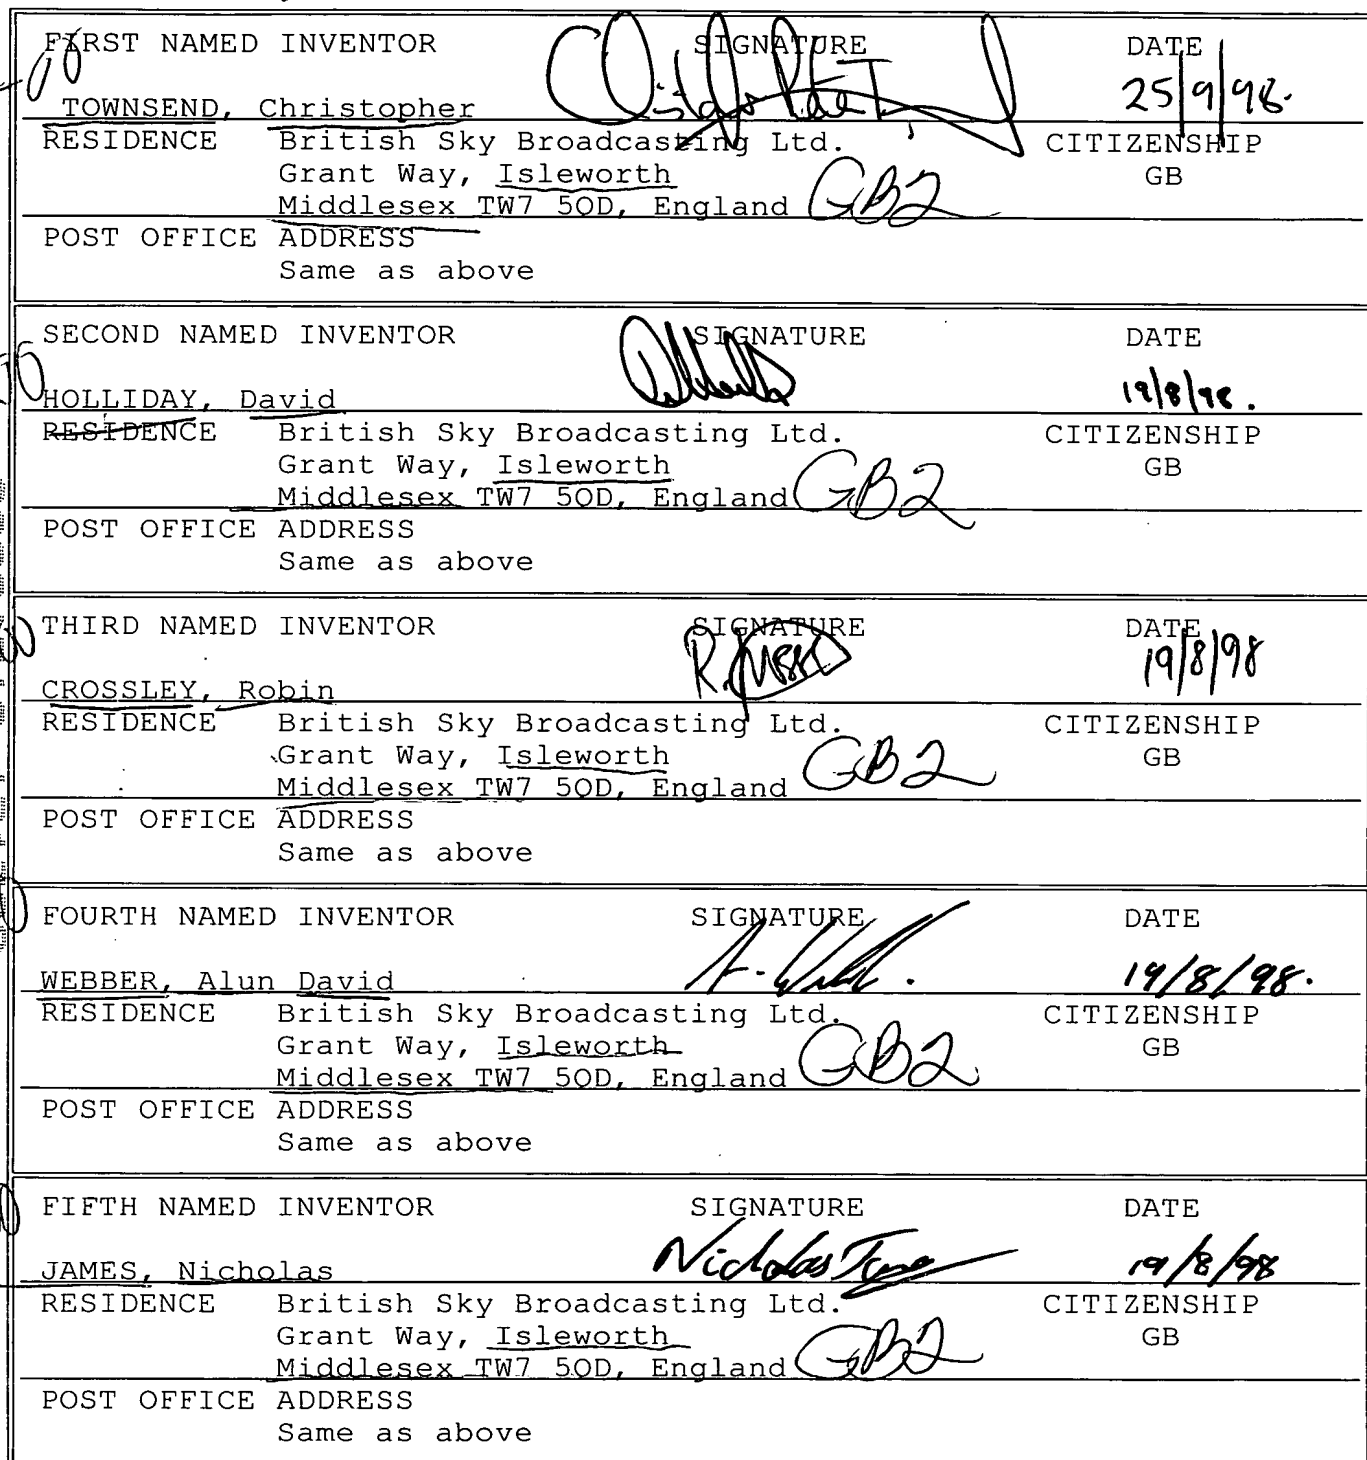 FIRST NAMED INVENTOR SIGNATURE DATE
TOWNSEND, Christopher 25/9/98.
RESIDENCE British Sky Broadcasting Ltd. CITIZENSHIP
Grant Way, Isleworth GB
Middlesex TW7 5QD, England GB2
POST OFFICE ADDRESS
Same as above
SECOND NAMED INVENTOR SIGNATURE DATE
HOLLIDAY, David 19/8/98.
RESIDENCE British Sky Broadcasting Ltd. CITIZENSHIP
Grant Way, Isleworth GB
Middlesex TW7 5QD, England GB2
POST OFFICE ADDRESS
Same as above
THIRD NAMED INVENTOR SIGNATURE DATE
CROSSLEY, Robin 19/8/98
RESIDENCE British Sky Broadcasting Ltd. CITIZENSHIP
Grant Way, Isleworth GB
Middlesex TW7 5QD, England GB2
POST OFFICE ADDRESS
Same as above
FOURTH NAMED INVENTOR SIGNATURE DATE
WEBBER, Alun David 19/8/98.
RESIDENCE British Sky Broadcasting Ltd. CITIZENSHIP
Grant Way, Isleworth GB
Middlesex TW7 5QD, England GB2
POST OFFICE ADDRESS
Same as above
FIFTH NAMED INVENTOR SIGNATURE DATE
JAMES, Nicholas Nicholas James 19/8/98
RESIDENCE British Sky Broadcasting Ltd. CITIZENSHIP
Grant Way, Isleworth GB
Middlesex TW7 5QD, England GB2
POST OFFICE ADDRESS
Same as above